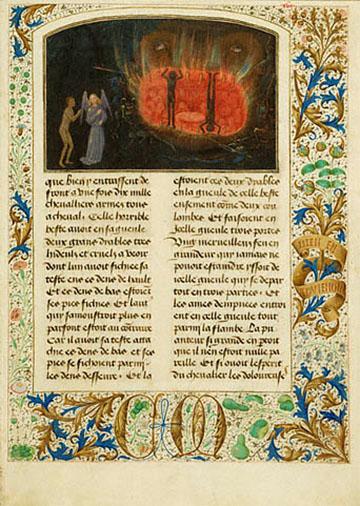 que bien y entrassent de
front a une fois dix mille
chevalliers armes tous
a cheval. Celle horrible
beste avoit en sa gueule
deux grans diables tres
hideulx et cruelz a veoir
dont lun avoit fichee sa
teste ens es dens de hault
et es dens de bas estoiet
ses pies fichies. Et laut
quy samoustroit plus en
parfont estoit au contraire
Car il avoit sa teste atta
chie es dens de bas et ses
pies se fichoient parmi
les dens desseure. Et la
estoient ces deux diables
en la gueule de celle beste
ensement come deux cou
lombes. Et faisoient en
icelle gueule trois portes
Ung merveilleux feu en
grandeur quy jamais ne
pouoit estaindre yssoit de
celle gueule quy se depar
toit en trois parties. Et
les ames dempnees entroi
ent en celle gueule tout
parmi la flambe. La pu
anteur si grande en yssoit
que il nen estoit nulle pa
reille. Et si ouoit lesperit
du chevalier les doloureuse
BIEN EN
AVIENGNE
CM